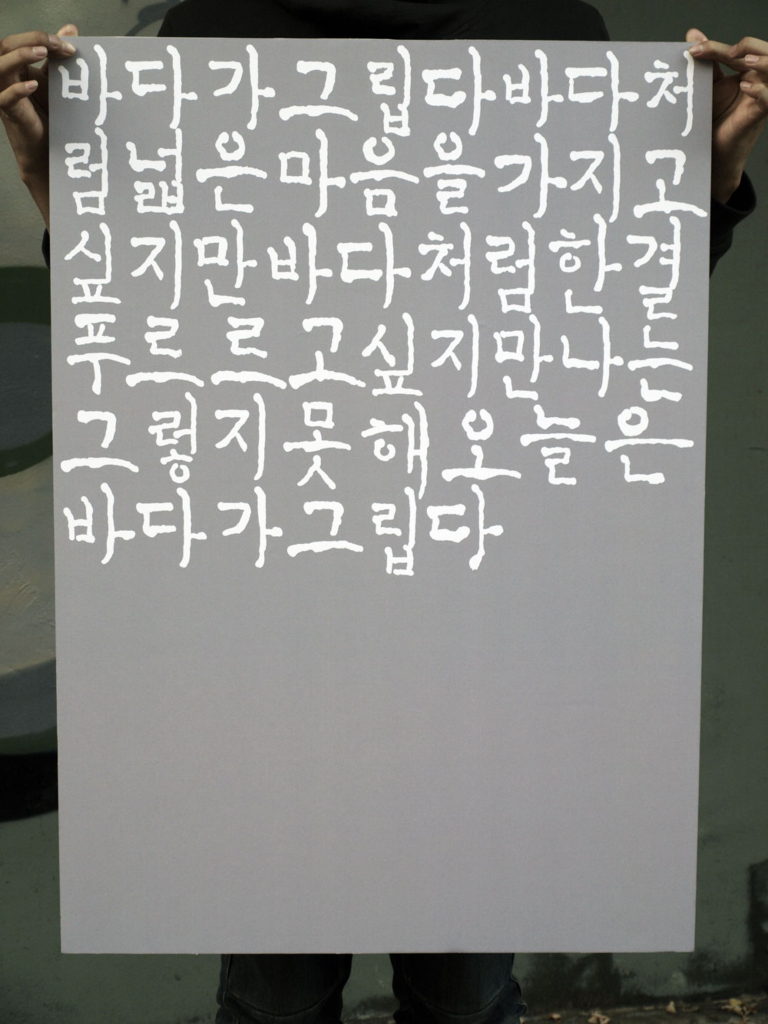 바다가그립다바다처
럼넓은마음을가지고
싶지만바다처럼한결
푸르르고싶지만나는
그렇지못해오늘은
바다가그립다